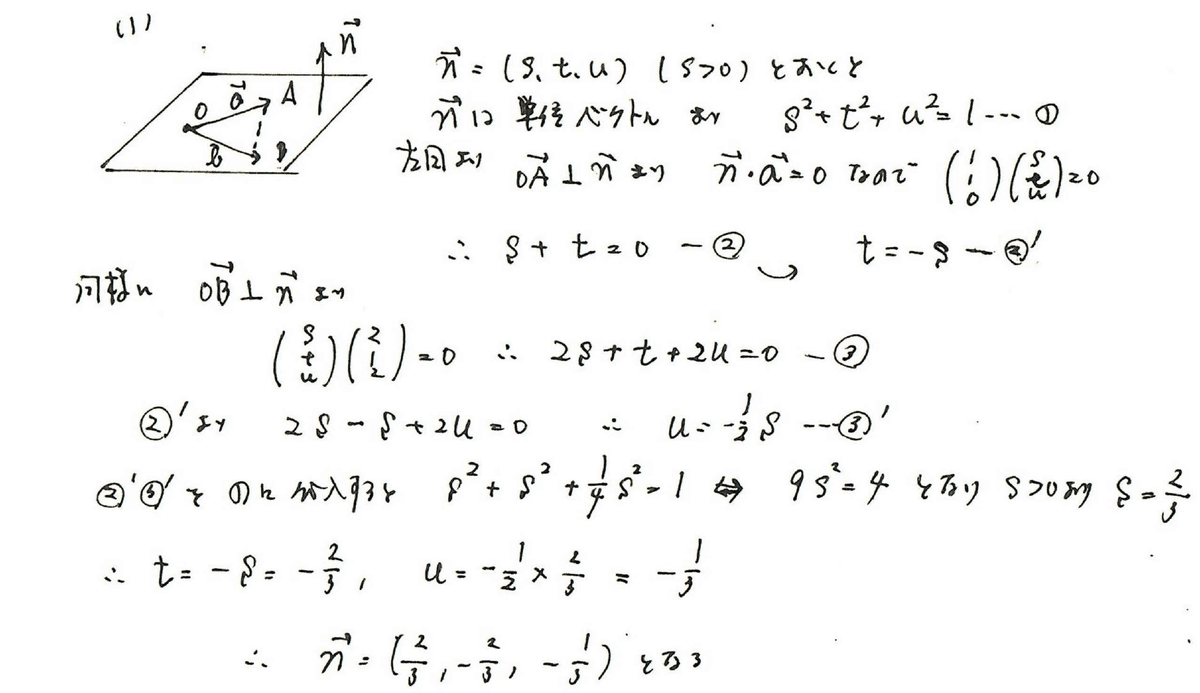 (1)
O a⃗ A b⃗ B n⃗
n⃗ = (s, t, u) (s>0) とおくと
n⃗は 単位ベクトル より s²+t²+u²=1 … ①
左図より OA⃗⊥n⃗ より n⃗・a⃗=0 なので (1 1 0)(s t u)=0
∴ s+t=0 − ② → t=−s − ②′
同様に OB⃗⊥n⃗ より
(s t u)(2 1 2)=0 ∴ 2s+t+2u=0 − ③
②′より 2s−s+2u=0 ∴ u=−1/2 s … ③′
②′③′を①に代入すると s²+s²+1/4 s²=1 ⇔ 9s²=4 となり s>0より s=2/3
∴ t=−s=−2/3, u=−1/2×2/3=−1/3
∴ n⃗=(2/3, −2/3, −1/3) となる